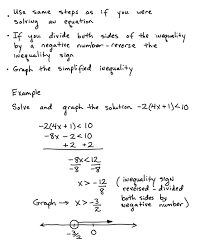 • Use same steps as if you were
solving an equation
• If you divide both sides of the inequality
by a negative number - reverse the
inequality sign
• Graph the simplified inequality
Example
Solve and graph the solution -2(4x+1)<10
-2(4x+1)<10
-8x-2<10
+2 +2
-8x<12
-8 -8
x>-12/8 (inequality sign
reversed - divided
both sides by
negative number)
Graph → x>-3/2
-3/2 0